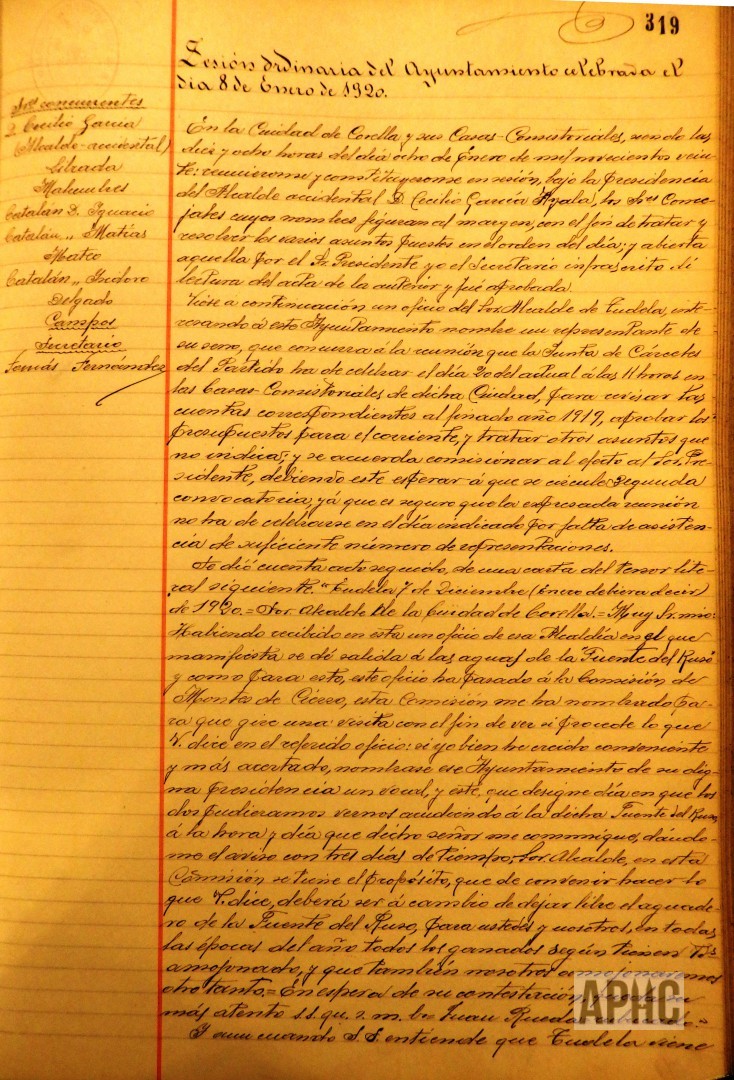 319
Sesión ordinaria del Ayuntamiento celebrada el
dia 8 de Enero de 1920.
Sres. concurrentes
D. Cecilio Garcia
(Alcalde-accidental)
Librada
Catalán D. Ignacio
Catalán ,, Matías
Mateo
Catalán ,, Isidoro
Delgado
Campos
Secretario
Tomás Fernández
En la Ciudad de Corella y sus Casas-Consistoriales, siendo las
diez y ocho horas del día ocho de Enero de mil novecientos vein-
te: reuniéronse y constituyeronse en sesión, bajo la presidencia
del Alcalde accidental D. Cecilio García Ayala, los Sres Conce-
jales cuyos nombres figuran al margen, con el fin de tratar y
resolver los varios asuntos puestos en el orden del día; y abierta
aquella por el Sr. Presidente yo el Secretario infrascrito dí
lectura del acta de la anterior y fué aprobada.
Leese a continuación un oficio del Sor. Alcalde de Tudela, inte-
resando á este Ayuntamiento nombre un representante de
su seno, que concurra á la reunión que la Junta de Cárceles
del Partido ha de celebrar el día 20 del actual á las 11 horas en
las Casas-Consistoriales de dicha Ciudad, para revisar las
cuentas correspondientes al finado año 1919, aprobar los
presupuestos para el corriente, y tratar otros asuntos que
no indica; y se acuerda comisionar al efecto al Sor. Pre-
sidente, debiendo este esperar á que se circule segunda
convocatoria, yá que es seguro que la expresada reunión
no ha de celebrarse en el día indicado por falta de asisten-
cia de suficiente número de representaciones.
Se dió cuenta acto seguido, de una carta del tenor lite-
ral siguiente. "Tudela 7 de Diciembre (Enero debiera decir)
de 1920.= Sor. Alcalde de la Ciudad de Corella.= Muy Sr. mio:
Habiendo recibido en esta un oficio de esa Alcaldía en el que
manifiesta se dé salida á las aguas de la "Fuente del Ruso"
y como para esto, este oficio ha pasado á la Comisión de
Montes de Cierzo, esta Comisión me ha nombrado pa-
ra que gire una visita con el fin de ver si procede lo que
V. dice en el referido oficio: si yo bien he creido conveniente
y más acertado, nombrase ese Ayuntamiento de su dig-
na presidencia un vocal, y este, que designe día en que los
dos pudieramos vernos acudiendo á la dicha Fuente del Ruso,
á la hora y día que dicho señor me comunique, dándo-
me el aviso con tres días de tiempo. Sor. Alcalde, en esta
Comisión se tiene el propósito, que de convenir hacer lo
que V. dice, deberá ser á cambio de dejar libre el aguade-
ro de la Fuente del Ruso, para ustedes y nosotros, en todas
las épocas del año todos los ganados según tienen Vs.
amojonado, y que también nosotros
otro tanto.= En espera de su contestación,
más atento s.s. q. s. m. b. Juan Rueda
Y aun cuando S.S. entiende que Tudela viene
APHC